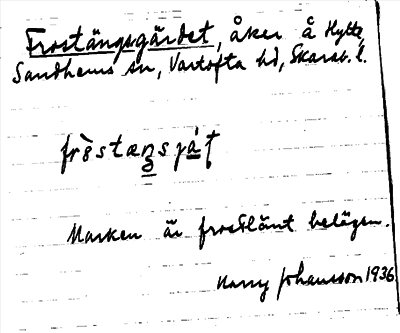 Frostängsgärdet, åker å Hylte,
Sandhems sn, Vartofta hd, Skarab. l.
Marken är frostlänt belägen.
Harry Johansson 1936